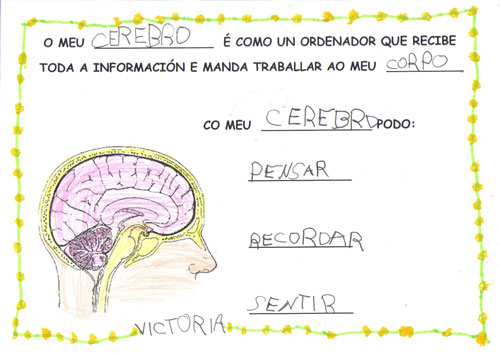 O MEU CEREBRO É COMO UN ORDENADOR QUE RECIBE
TODA A INFORMACIÓN E MANDA TRABALLAR AO MEU CORPO
CO MEU CEREBRO PODO:
PENSAR
RECORDAR
SENTIR
VICTORIA